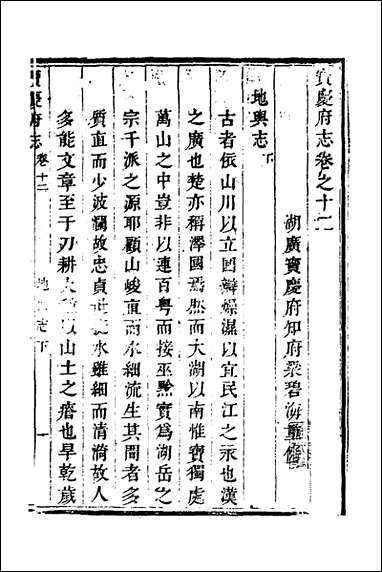 寶慶府志卷之十二
湖廣寶慶府知府梁碧海重修
地輿志下
古者依山川以立國辯燥濕以宜民江之永也漢
之廣也楚亦稱澤國焉然而大湖以南惟寶獨處
萬山之中豈非以連百粵而接巫黔實為湖岳之
宗千派之源耶顧山峻直而水細流生其間者多
質直而少波瀾故忠貞 水雖細而清漪故人
多能文章至于刀耕火 山土之瘠也旱乾歲
寶慶府志
卷十二
地 志下
一